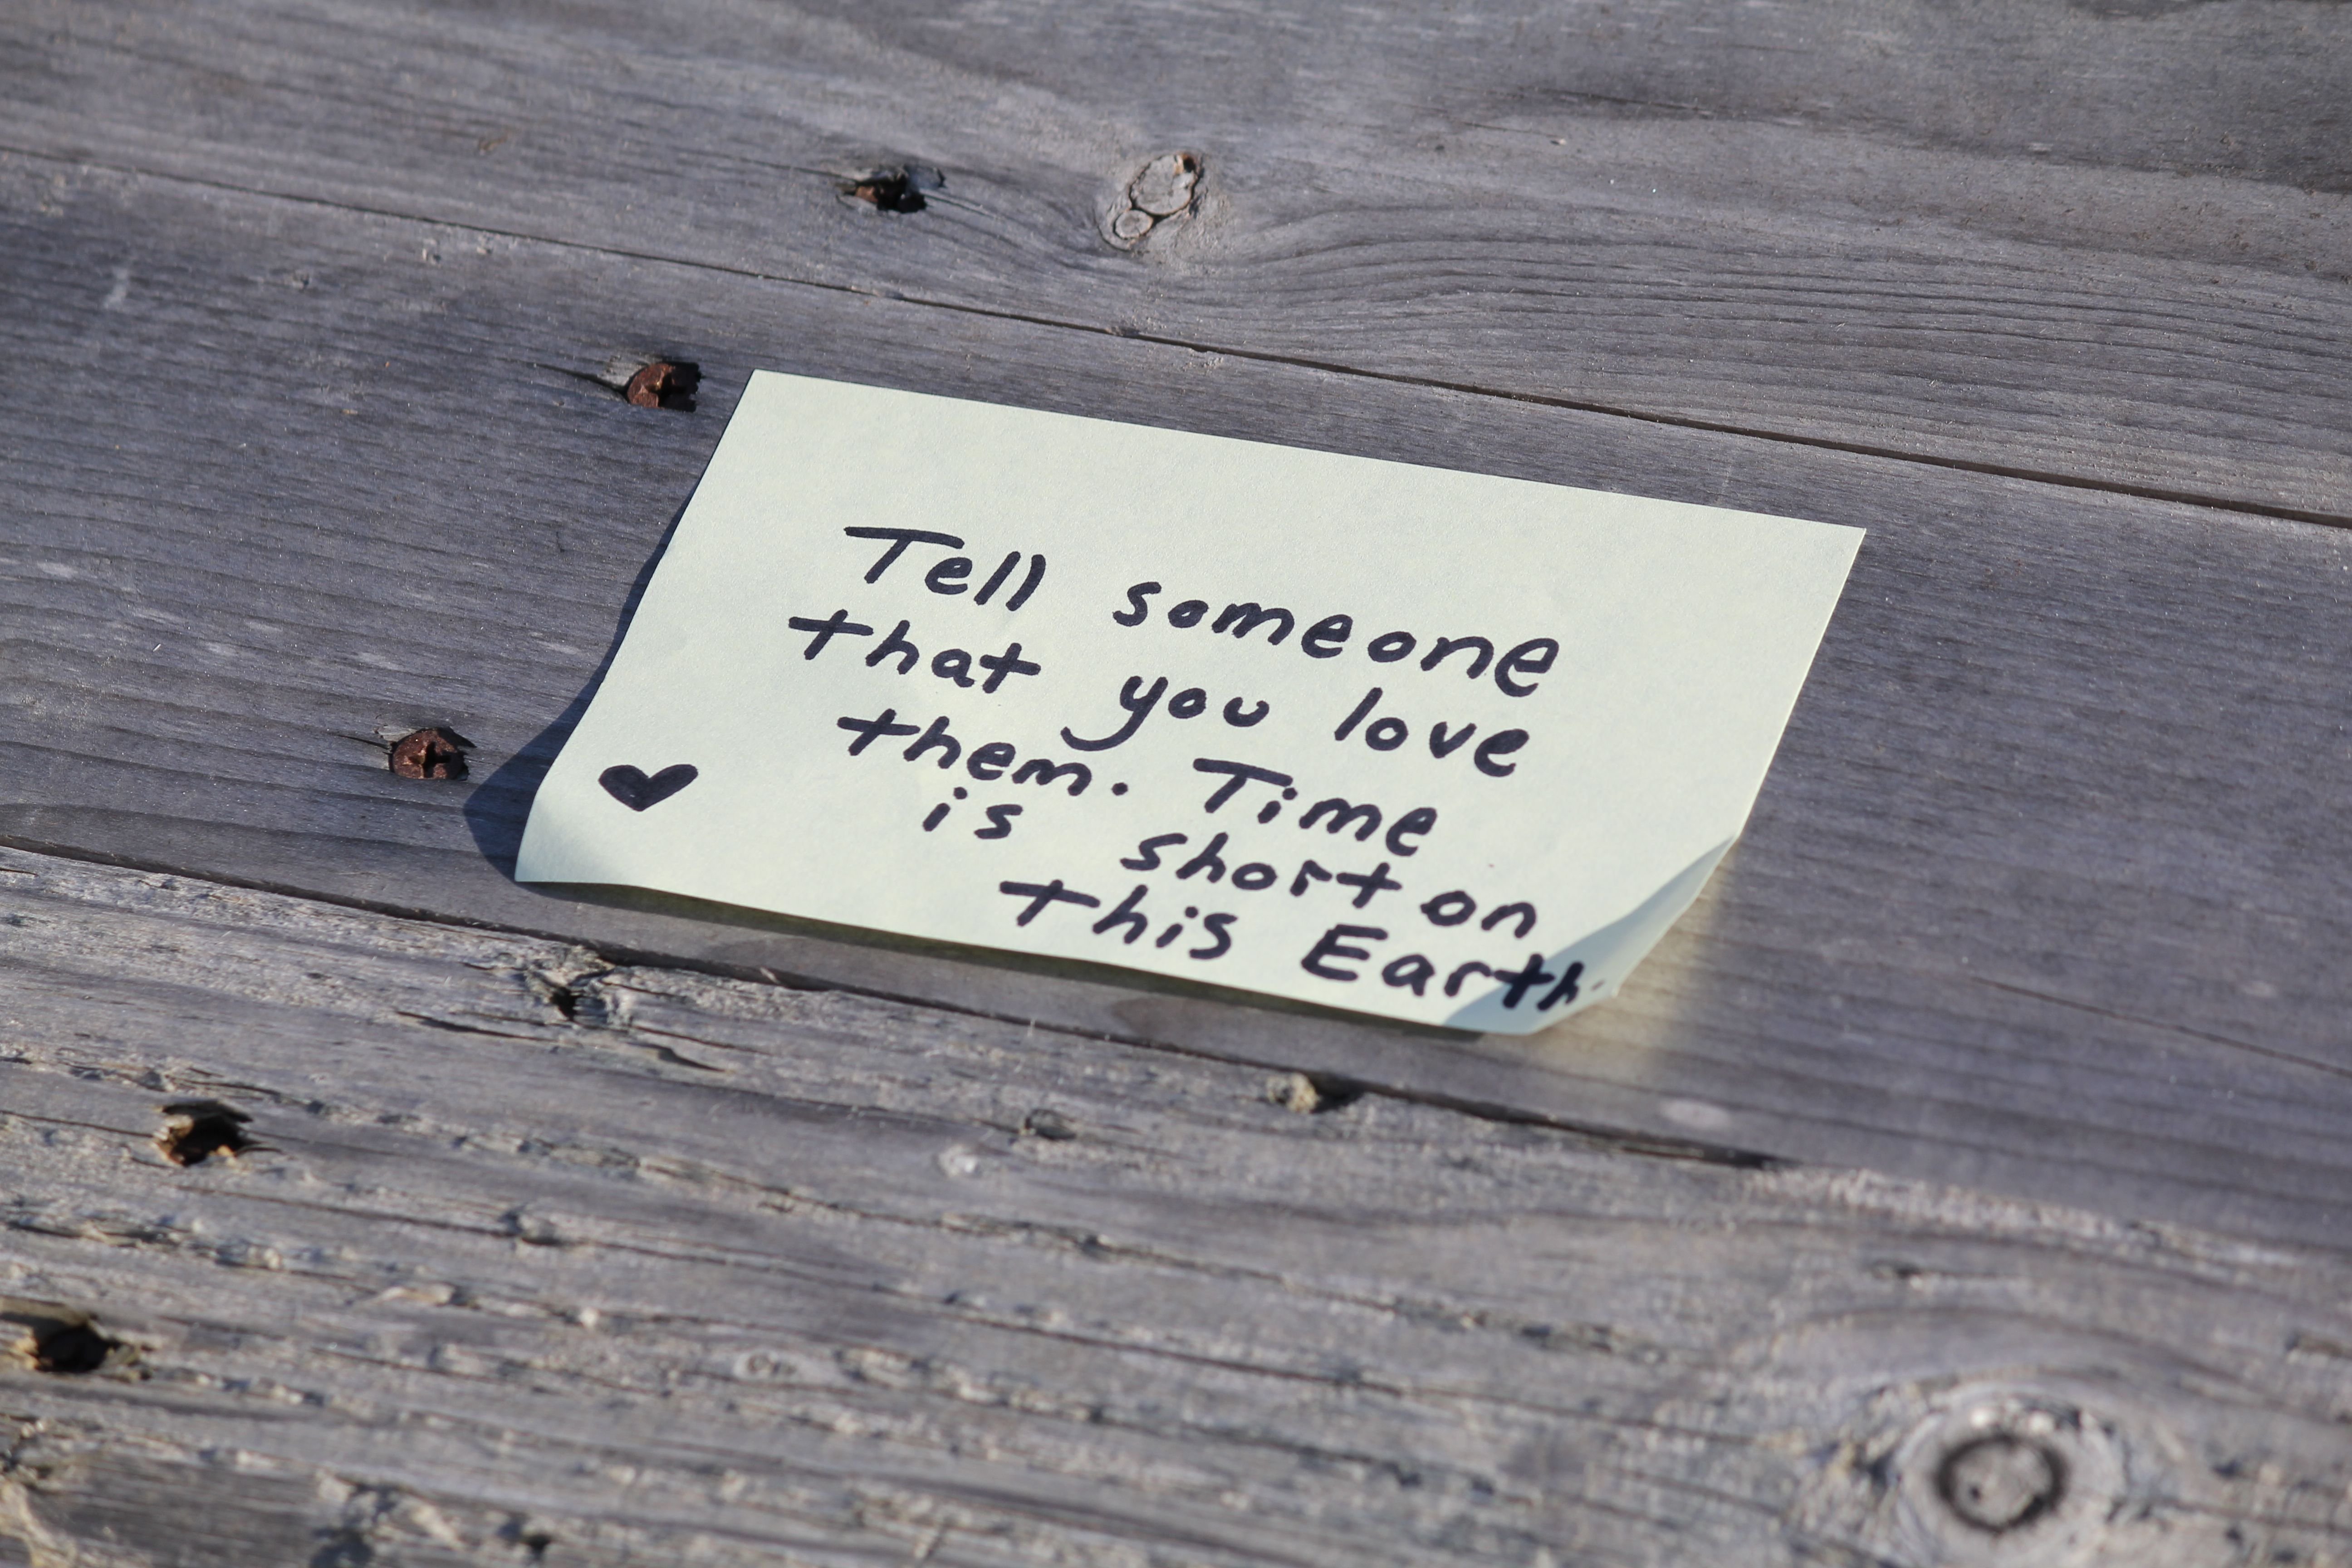 Tell someone
that you love
them. Time
is short on
this Earth.